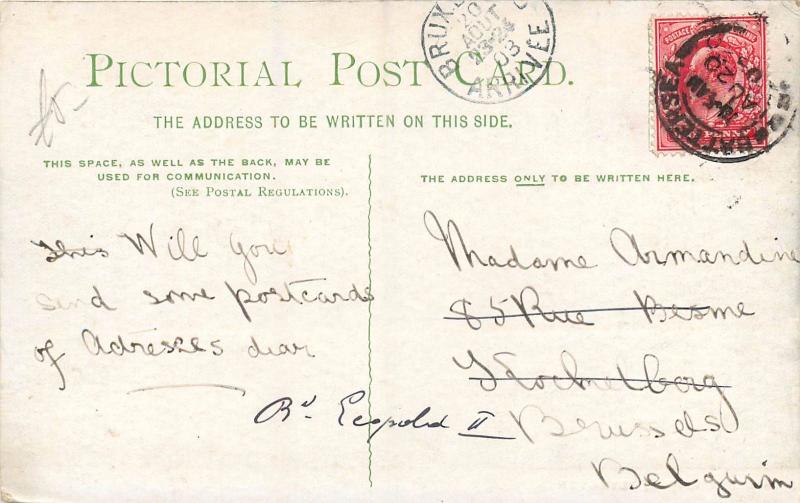 PICTORIAL POST CARD.
THE ADDRESS TO BE WRITTEN ON THIS SIDE.
THIS SPACE, AS WELL AS THE BACK, MAY BE
USED FOR COMMUNICATION.
(SEE POSTAL REGULATIONS).
THE ADDRESS ONLY TO BE WRITTEN HERE.
this Will you
send some postcards
of Adresses dear
Madame Armandine
85 Rue Besme
Brussels
Belguim
Bd Leopold II
20
AOUT
ARRIVEE
BATTERSEA
POSTAGE
PENNY